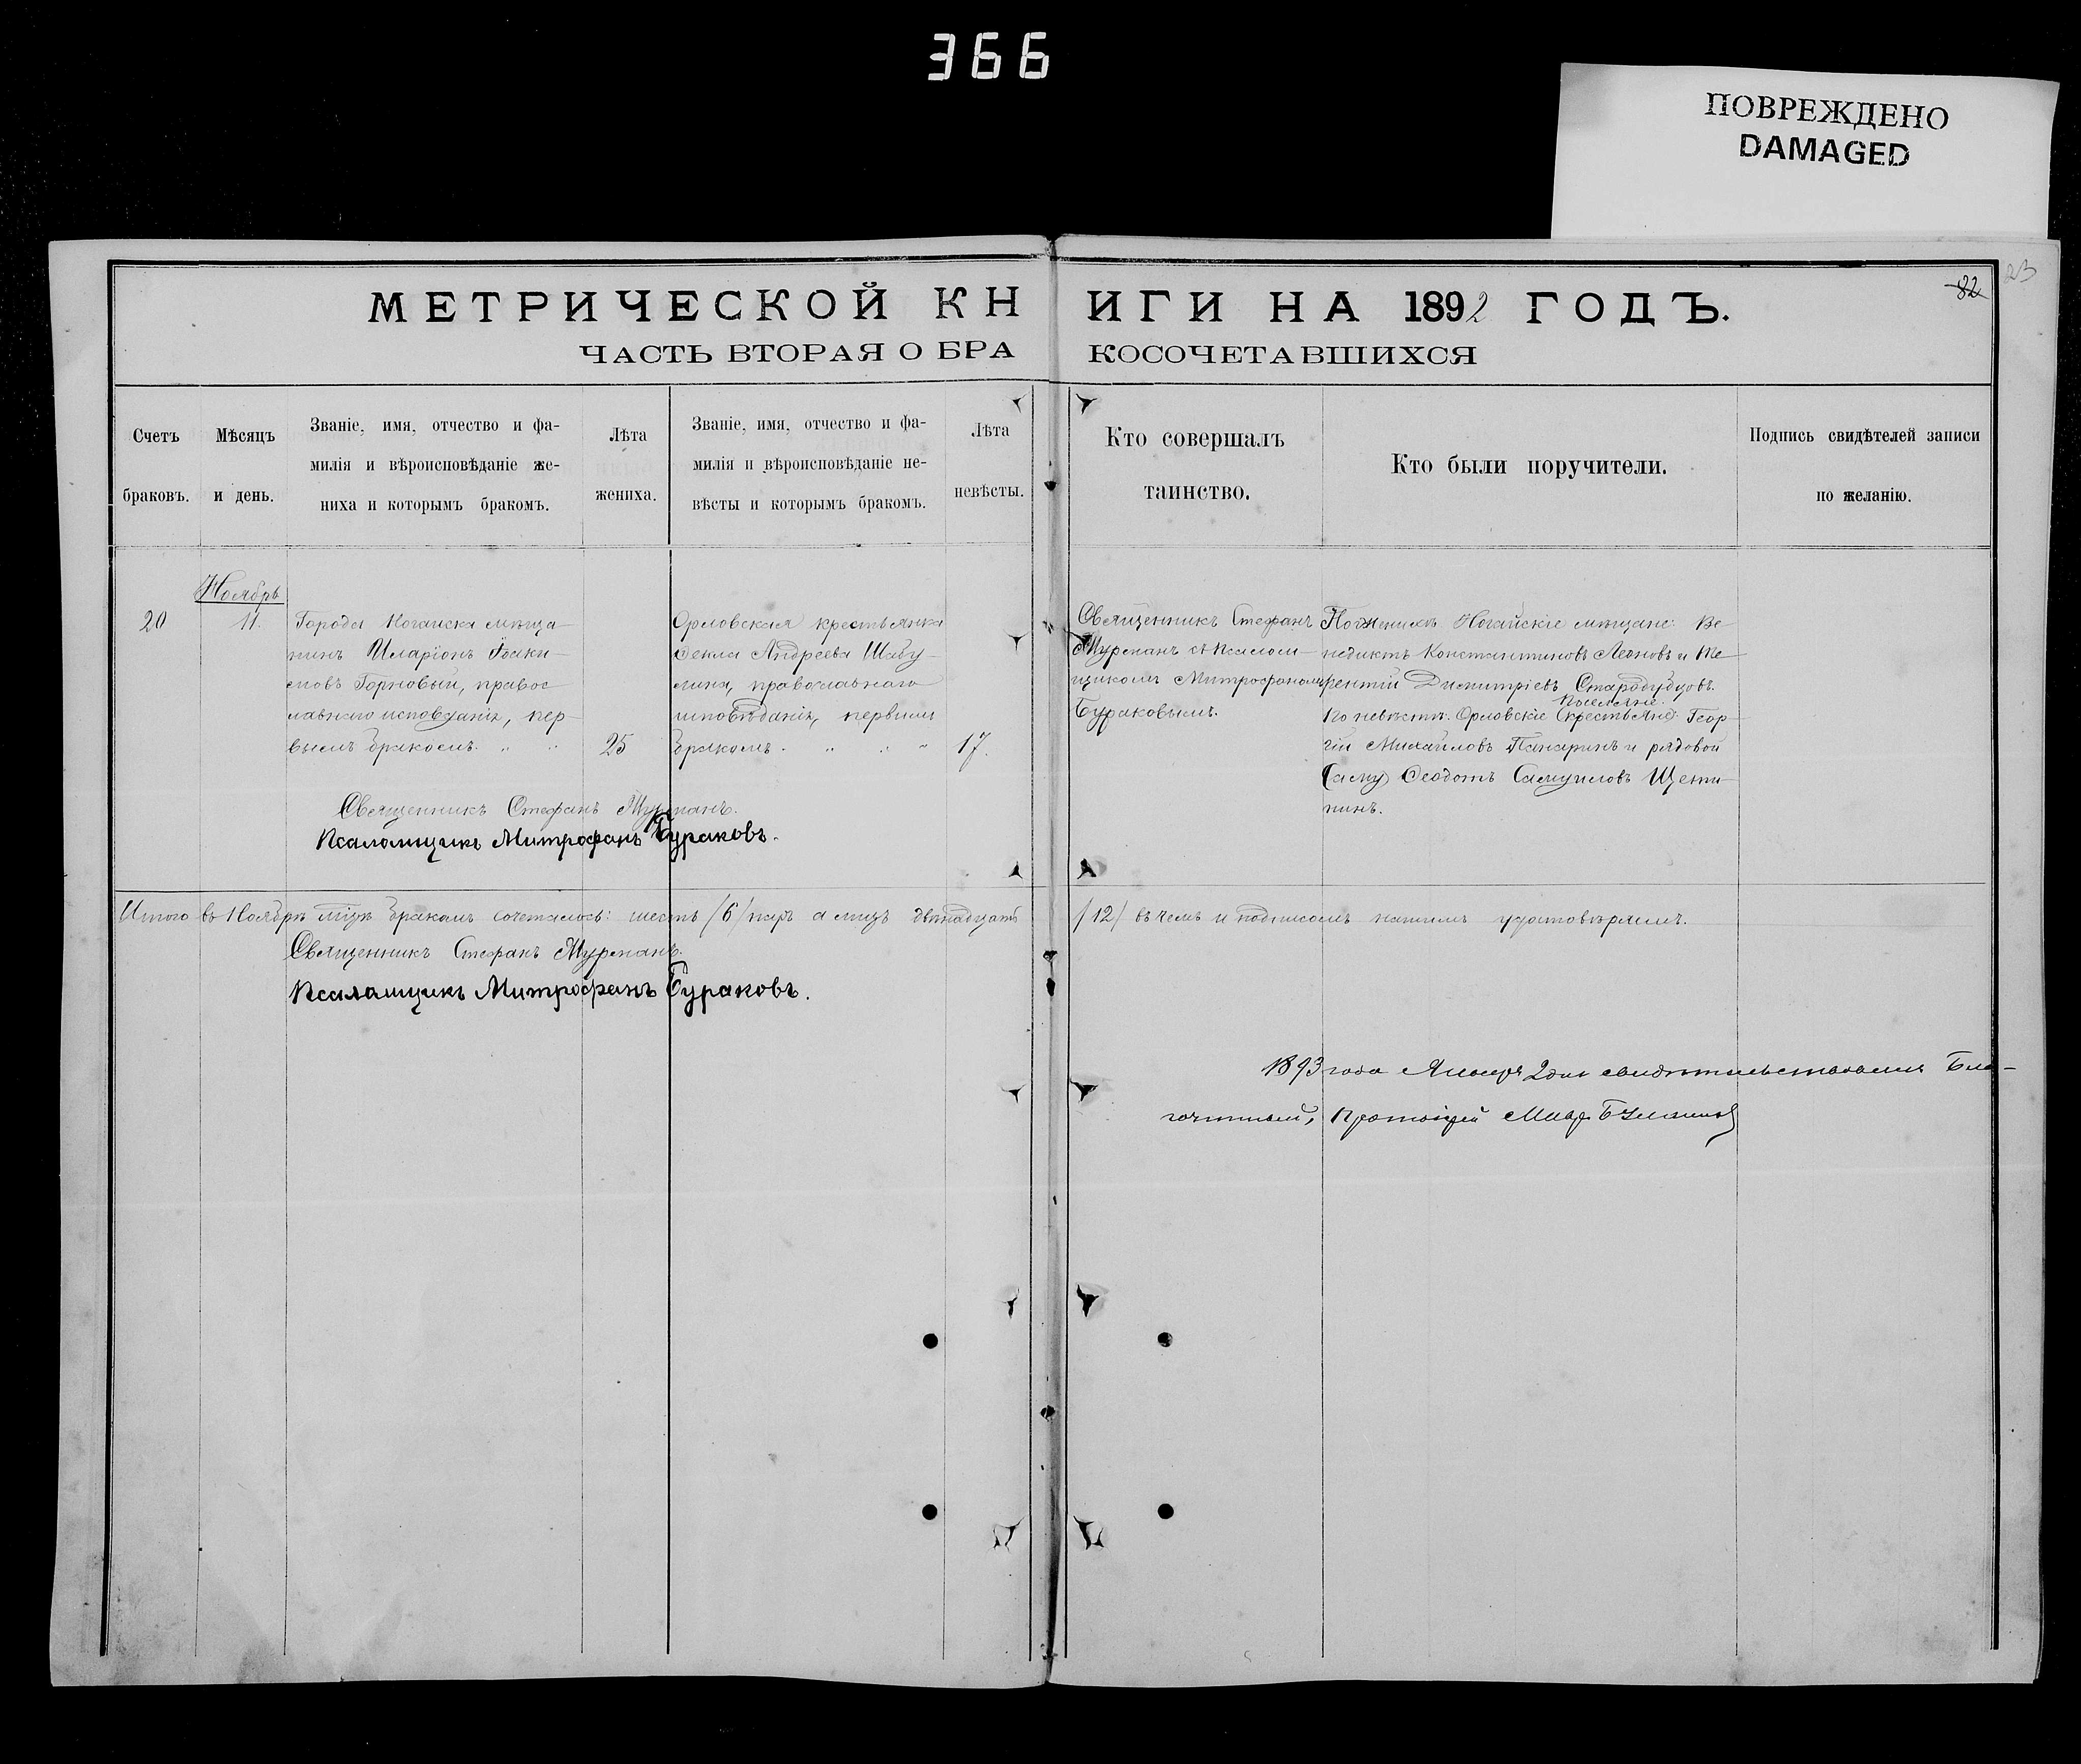 366
ПОВРЕЖДЕНО
DAMAGED
23
82
МЕТРИЧЕСКОЙ КНИГИ НА 1892 ГОДЪ.
ЧАСТЬ ВТОРАЯ О БРАКОСОЧЕТАВШИХСЯ
Счетъ
браковъ.
Мѣсяцъ
и день.
Званіе, имя, отчество и фа-
милія и вѣроисповѣданіе же-
ниха и которымъ бракомъ.
Лѣта
жениха.
Званіе, имя, отчество и фа-
милія и вѣроисповѣданіе не-
вѣсты и которымъ бракомъ.
Лѣта
невѣсты.
Кто совершалъ
таинство.
Кто были поручители.
Подпись свидѣтелей записи
по желанію.
20
Ноябрь
11.
Города Ногайска мѣща-
нинъ Иларіонъ Іоаки-
мовъ Горновый, правос
лавнаго исповѣданія, пер-
вымъ бракомъ. " "
25
Орловская крестьянка
Ѳекла Андреева Шабу-
лина, православнаго
исповѣданія, первымъ
бракомъ. " " "
17.
Священникъ Стефанъ
Мурманъ съ псалом-
щикомъ Митрофаномъ
Бураковымъ.
По женихѣ Ногайскіе мѣщане: Ве-
недиктъ Константиновъ Леоновъ и Те-
рентій Димитріевъ Стародубцовъ.
поселяне
По невѣстѣ: Орловскіе (крестьяне) Геор-
гій Михайловъ Панаринъ и рядовой
(Саму) Ѳеодотъ Самуиловъ Щети-
нинъ.
Священникъ Стефанъ Мурманъ.
Псаломщикъ Митрофанъ Бураковъ.
Итого въ Ноябрѣ мцѣ бракомъ сочеталось: шесть /6/ паръ а лицъ двѣнадцать /12/ въ чемъ и подписомъ нашимъ удостовѣряемъ.
Священникъ Стефанъ Мурманъ.
Псаломщикъ Митрофанъ Бураковъ.
1893 года Января 2 дня свидѣтельствовалъ Бла-
гочинный, Протоіерей